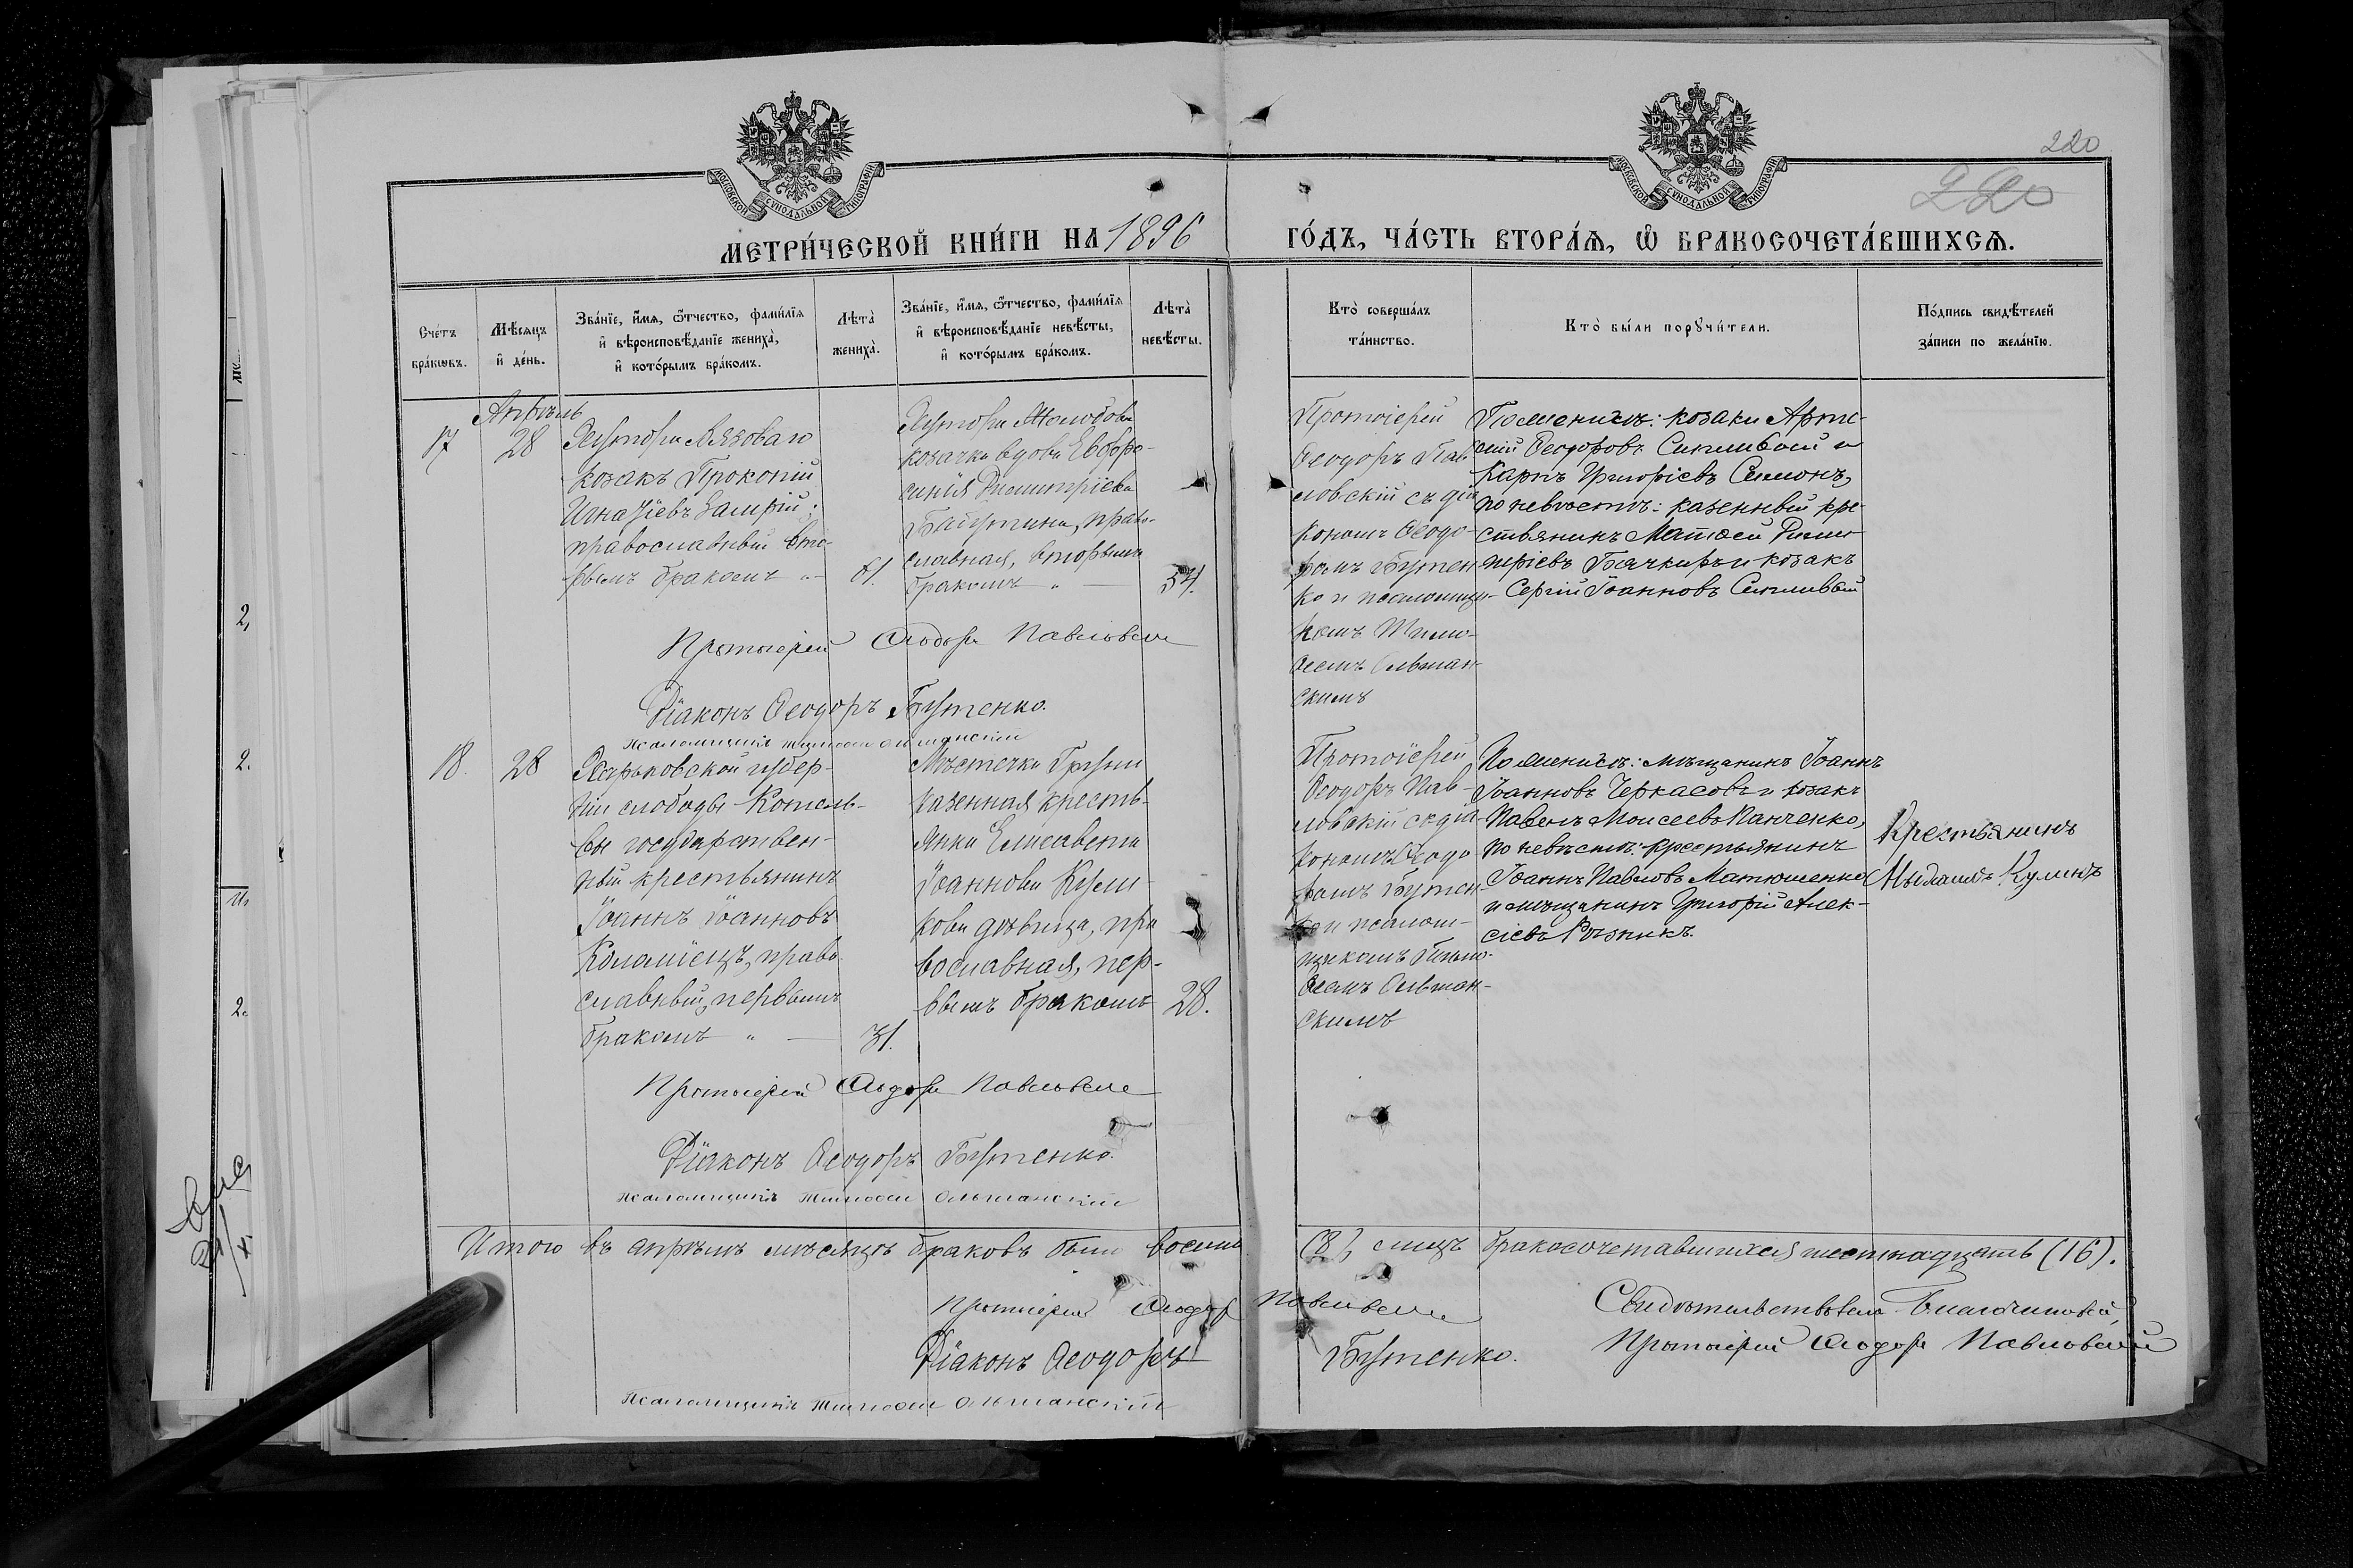 220
220
МОСКОВСКОЙ СУНОДАЛЬНОЙ ТИПОГРАФІИ
МОСКОВСКОЙ СУНОДАЛЬНОЙ ТИПОГРАФІИ
МЕТРИ́ЧЕСКОЙ КНИ́ГИ НА 1896 ГО́ДЪ, ЧА́СТЬ ВТОРА́Я, Ѡ БРАКОСОЧЕТА́ВШИХСЯ.
Сче́тъ
бра́кѡвъ.
Мѣ́сяцъ
и҆ де́нь.
Зва́нїе, и҆́мя, ѻ҆́тчество, фами́лїя
и҆ вѣроисповѣ́данїе жениха̀,
и҆ кото́рымъ бра́комъ.
Лѣта̀
жениха̀.
Зва́нїе, и҆́мя, ѻ҆́тчество, фами́лїя
и҆ вѣроисповѣ́данїе невѣ́сты,
и҆ кото́рымъ бра́комъ.
Лѣта̀
невѣ́сты.
Кто̀ соверша́лъ
та́инство.
Кто̀ бы́ли порꙋчи́тели.
По́дпись свидѣ́телей
за́писи по жела́нїю.
Апрѣль
17
28
Хутора Лязоваго
козакъ Прокопій
Игнатіевъ
православный вто-
рымъ бракомъ
61.
Хутора
козачка вдова Евфро-
синія Димитріева
Бабутина, право-
славная, вторымъ
бракомъ
54.
Протоіерей
Ѳеодоръ Пав-
ловскій съ діа-
кономъ Ѳеодо-
ромъ Бутен-
ко и псаломщи-
комъ Тимо-
ѳеемъ Ольшан-
скимъ
По женихѣ: козаки Арте-
мій Ѳеодоровъ и
Карпъ Григоріевъ
по невѣстѣ: казенный кре-
стьянинъ Матѳей Дими-
тріевъ и козакъ
Сергій Іоанновъ
Протоіерей Ѳеодоръ Павловскій
Діаконъ Ѳеодоръ Бутенко.
Псаломщикъ Тимоѳей Ольшанскій
18.
28
Харьковской губер-
ніи слободы Котель-
вы государствен-
ный крестьянинъ
Іоаннъ Іоанновъ
Коломіецъ, право-
славный, первымъ
бракомъ
31.
Мѣстечка Груни
казенная кресть-
янка Елисавета
Іоаннова Кули-
кова дѣвица, пра-
вославная, пер-
вымъ бракомъ
28.
Протоіерей
Ѳеодоръ Пав-
ловскій съ діа-
кономъ Ѳеодо-
ромъ Бутен-
ко и псалом-
щикомъ Тимо-
ѳеемъ Ольшан-
скимъ
По женихѣ: мѣщанинъ Іоаннъ
Іоанновъ Черкасовъ и козакъ
Павелъ Моисеевъ Панченко,
по невѣстѣ: крестьянинъ
Іоаннъ Павловъ Матюшенко
и мѣщанинъ Григорій Алек-
сіевъ Рѣзникъ.
Крестьянинъ
Куликъ
Протоіерей Ѳеодоръ Павловскій
Діаконъ Ѳеодоръ Бутенко.
Псаломщикъ Тимоѳей Ольшанскій
Итого въ апрѣлѣ мѣсяцѣ браковъ было восемь (8), лицъ бракосочетавшихся шестнадцать (16).
Протоіерей Ѳеодоръ Павловскій
Діаконъ Ѳеодоръ Бутенко.
Псаломщикъ Тимоѳей Ольшанскій
Свидѣтельствовалъ Благочинный,
Протоіерей Ѳеодоръ Павловскій
2.
2.